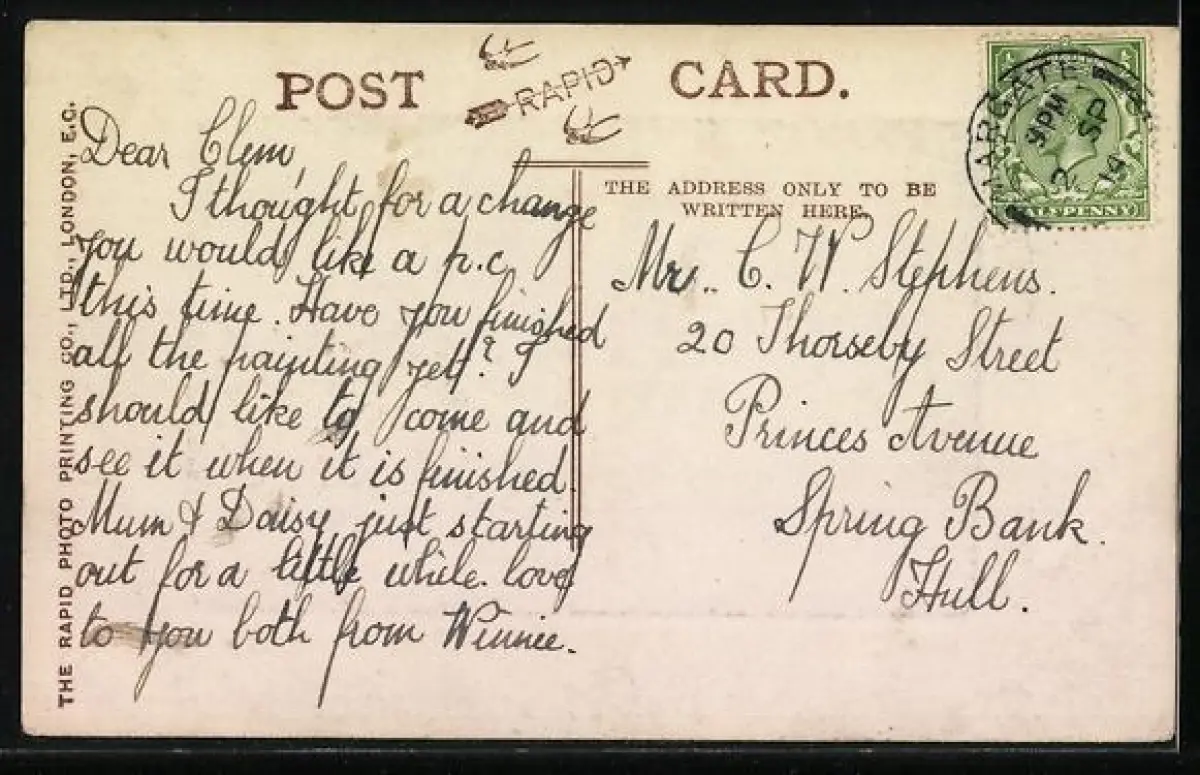 POST CARD.
RAPID
THE ADDRESS ONLY TO BE
WRITTEN HERE.
MARGATE
9 PM
2 SP
14
HALFPENNY
Dear Clem,
I thought for a change
you would like a p.c.
this time. Have you finished
all the painting yet? I
should like to come and
see it when it is finished.
Mum & Daisy just starting
out for a little while. love
to you both from Winnie.
Mr. C. W. Stephens.
20 Thorseby Street
Princes Avenue
Spring Bank.
Hull.
THE RAPID PHOTO PRINTING CO., LTD., LONDON, E.C.